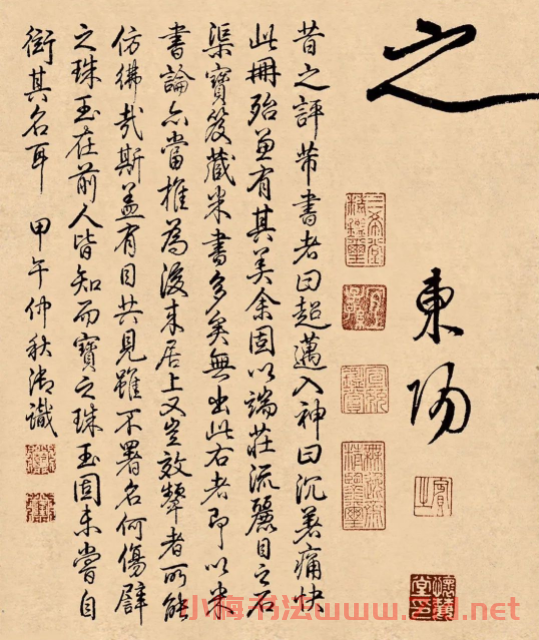 之
東陽
昔之評芾書者曰超邁入神曰沉著痛快
此冊殆兼有其美余固以端莊流麗目之石
渠寶笈藏米書多矣無出此右者即以米
書論亦當推為後來居上又豈效顰者所能
仿彿哉斯蓋有目共見雖不署名何傷譬
之珠玉在前人皆知而寶之珠玉固未嘗自
衒其名耳 甲午仲秋御識
小梅书法www.z1.net